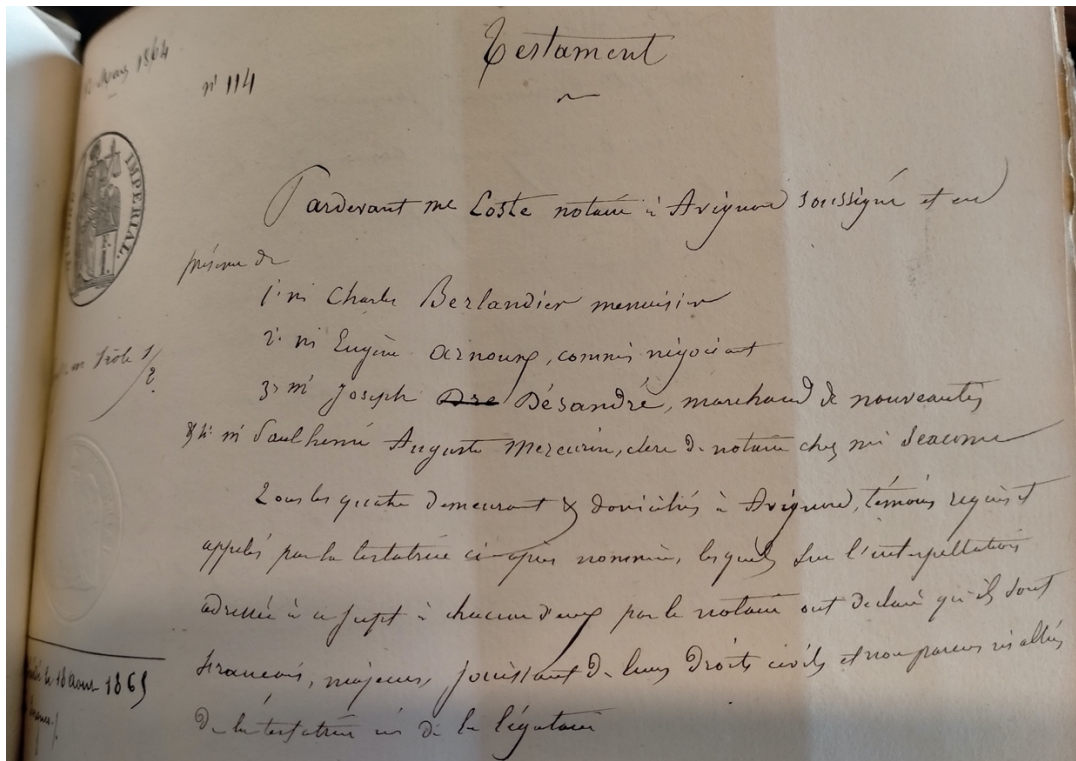 Mars 1864
Testament
n° 114
IMPERIAL
Pardevant me Coste notaire à Avignon soussigné et en
présence de
1° mr Charles Berlandier menuisier
2° mr Eugène Arnoux, commis négociant
3° mr Joseph Dre Désandré, marchand de nouveautés
& 4° mr Paul henri Auguste Mercurin, clerc de notaire chez me Jeacome
Tous les quatre demeurant & domiciliés à Avignon, témoins requis et
appelés par la testatrice ci-après nommée, lesquels sur l'interpellation
adressée à ce sujet à chacun d'eux par le notaire ont declaré qu'ils sont
français, majeurs, jouissant de leurs droits civils et non parens ni alliés
De la testatrice ni de la légataire
rôle 1/2
le 18 aout 1865